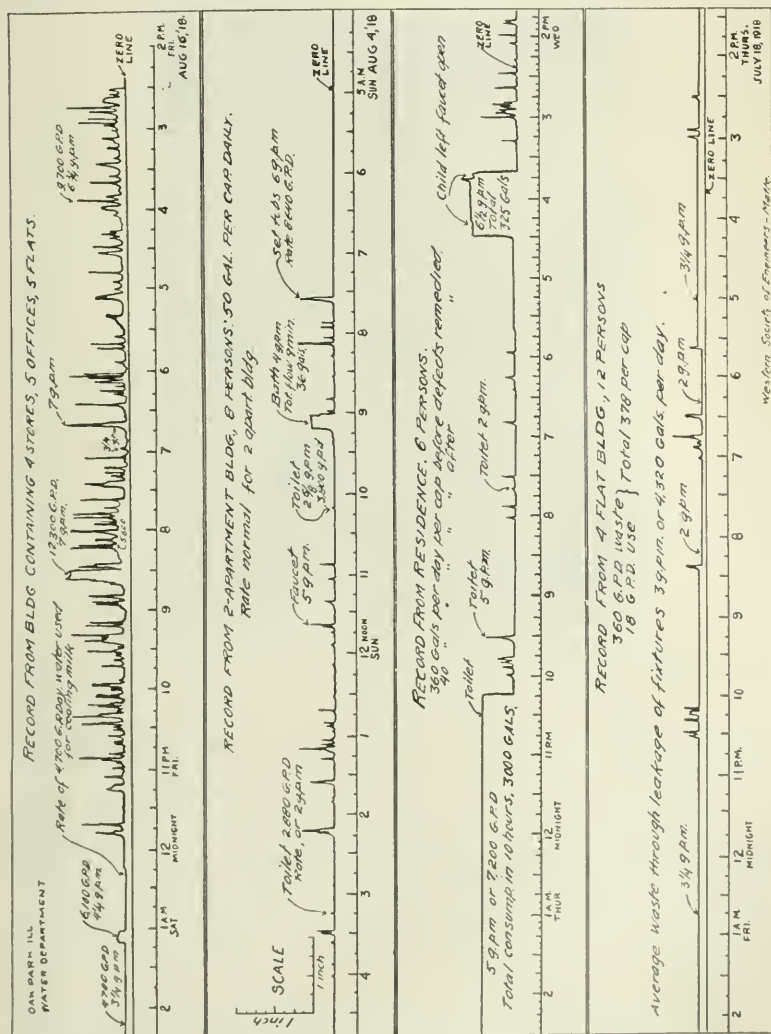 OAK PARK ILL
WATER DEPARTMENT
RECORD FROM BLDG CONTAINING 4 STORES, 5 OFFICES, 5 FLATS.
4700 G.P.D
3 1/4 g.p.m
6,100 G.P.D
4 1/4 g.p.m
Rate of 4700 G.P.Day. water used
for cooling milk
12,300 G.P.D.
7 g.p.m.
7 g.p.m
9,700 G.P.D
6 3/4 g.p.m
ZERO
LINE
2
1 AM
SAT
12
MIDNIGHT
11 PM
FRI.
10
9
8
7
6
5
4
3
2 P.M.
FRI.
AUG 16,'18.
RECORD FROM 2-APARTMENT BLDG, 8 PERSONS: 50 GAL. PER CAP. DAILY.
Rate normal for 2 apart bldg
1 inch
SCALE
1 inch
Toilet 2,880 G.P.D
Rate, or 2 g.p.m
Faucet
5 g.p.m.
Toilet
g.p.m
g.p.d
Bath 4 g.p.m
Tot. flow 9 min.
36 gals.
Set tubs 6 g.p.m
Rate 8640 G.P.D.
ZERO
LINE
4
3
2
1
12 NOON
SUN
11
10
9
8
7
6
5 A.M
SUN AUG 4,'18
RECORD FROM RESIDENCE. 6 PERSONS.
360 Gals per day per cap before defects remedied.
40 " " " " after " "
5 g.p.m or 7,200 G.P.D
Total consump. in 10 hours, 3000 GALS.
Toilet
Toilet
5 g.p.m.
Toilet 2 g.p.m.
6 1/2 g.p.m
Total
325 Gals
Child left faucet open
ZERO
LINE
2
1 A.M.
THUR
12
MIDNIGHT
11 PM
10
9
8
7
6
5
4
3
2 PM
WED
RECORD FROM 4 FLAT BLDG., 12 PERSONS
360 G.P.D. waste } Total 378 per cap
18 G.P.D. use
Average waste through leakage of fixtures 3 g.p.m. or 4,320 gals. per day.
3 1/4 g.p.m.
2 g.p.m
2 g.p.m
3 1/4 g.p.m
ZERO LINE
2
1 A.M.
FRI.
12
MIDNIGHT
11 P.M.
10
9
8
7
6
5
4
3
2 P.M.
THURS.
JULY 18, 1918
Western Society of Engineers-